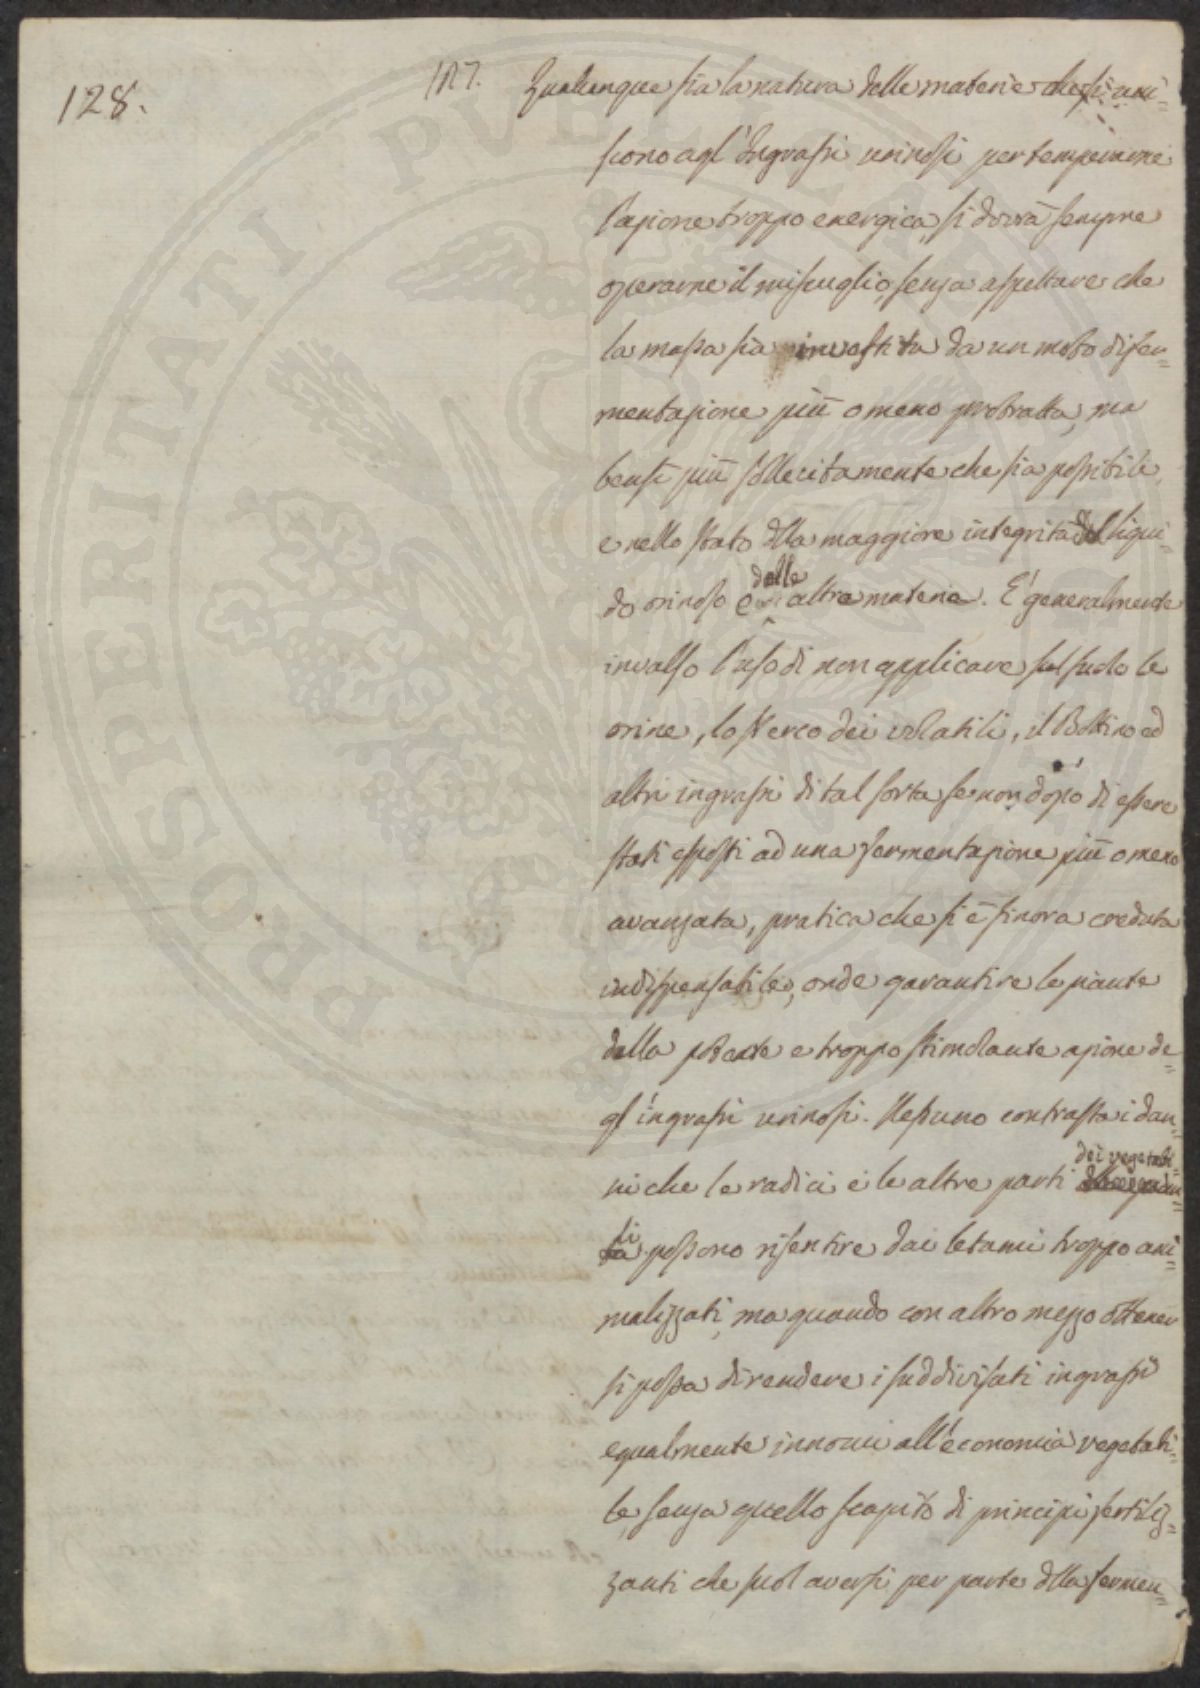 128.
127. Qualunque sia la natura delle materie che si uni=
scono agl'Ingrassi urinosi per temperarne
l'azione troppo energica, si dovrà sempre
operarne il miscuglio, senza aspettare che
la massa sia investita da un moto di fer=
mentazione più o meno protratta, ma
bensì più sollecitamente che sia possibile,
e nello stato dlla maggiore integrità del liqui=
do orinoso e delle altre materie. E' generalmente
invalso l'uso di non applicare sul suolo le
orine, lo sterco dei volatili, il Bottino ed
altri ingrassi di tal sorta se non dopo di essere
stati esposti ad una fermentazione più o meno
avanzata, pratica che si è finora creduta
indispensabile, onde garantire le piante
dalla potente e troppo stimolante azione de=
gl'ingrassi urinosi. Nessuno contrasta i dan=
ni che le radici e le altre parti dei vegetabi=
li possono risentire dai letami troppo ani=
malizzati, ma quando con altro mezzo ottener
si possa di rendere i suddivisati ingrassi
egualmente innocui all'economia vegetabi=
le, senza quello scapito di principi fertiliz=
zanti che suol aversi per parte dlla fermen=
PROSPERITATI PVBLICAE